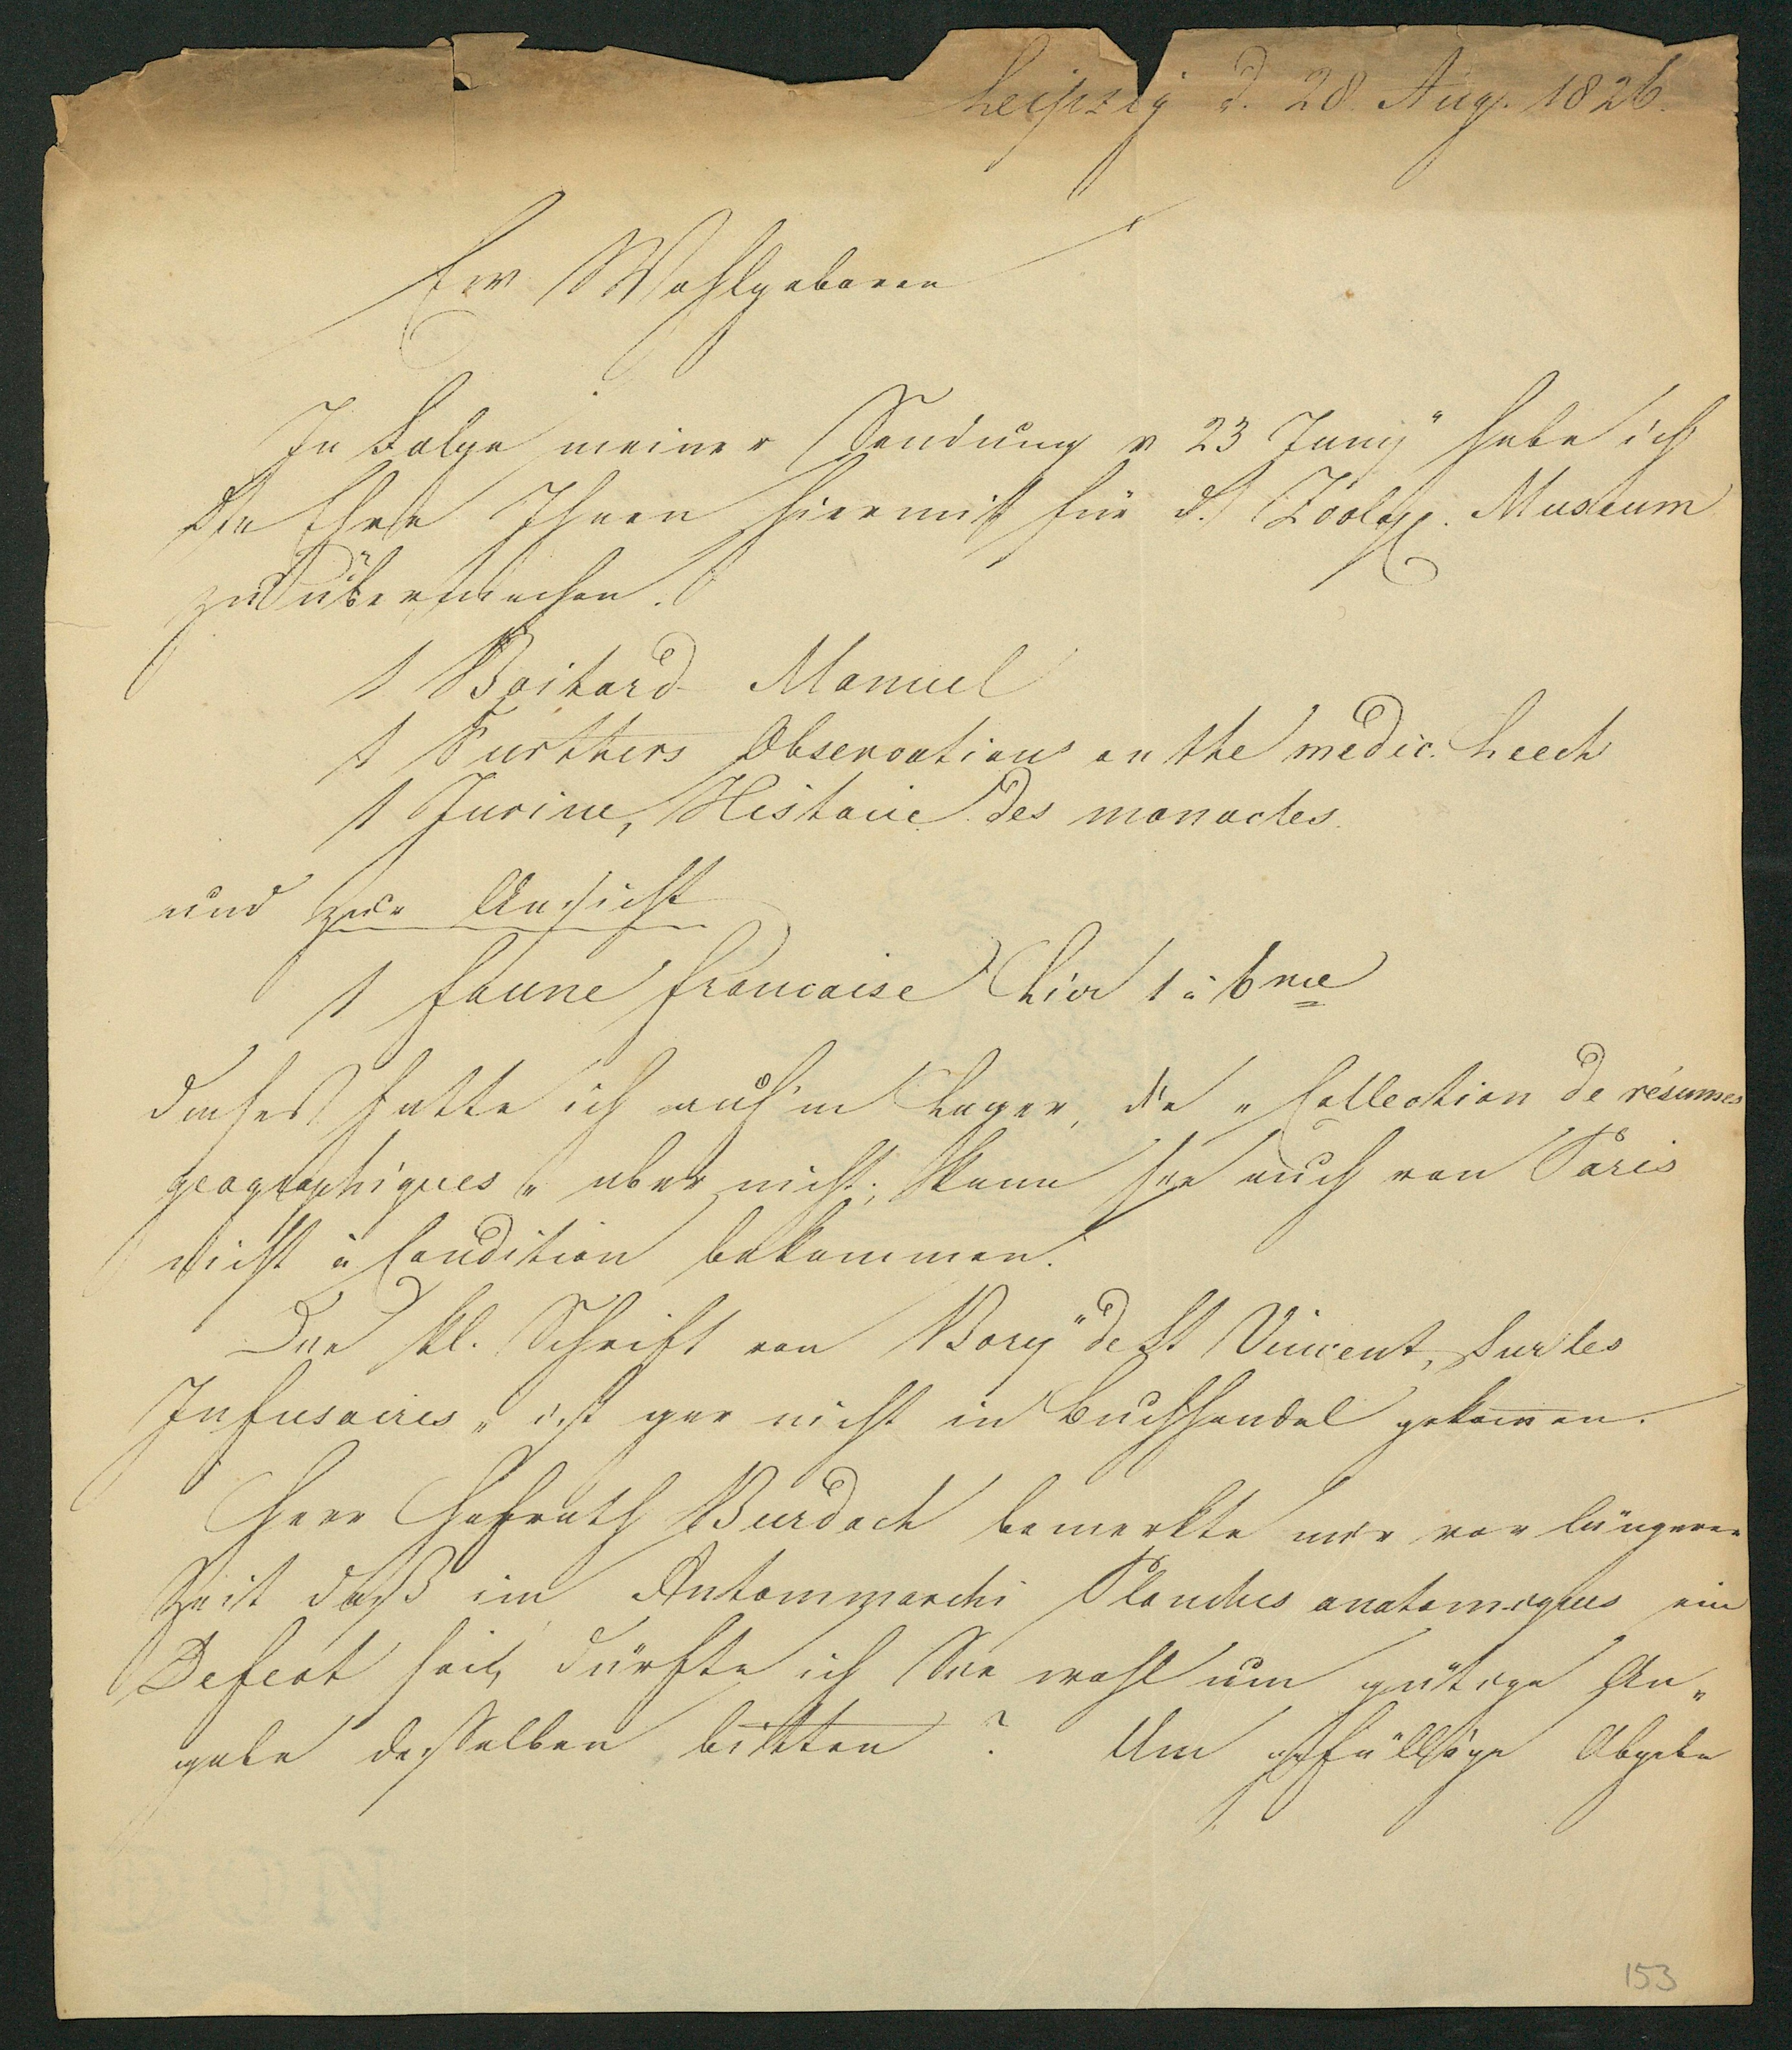 Leipzig d. 28. Aug. 1826.
Ew Wohlgeboren
In Folge meiner Sendung v 23 Juny habe ich
die Ehre Ihnen hiermit für d. Zoolog. Museum
zu übermachen.
1 Boitard Manuel
1 Further Observations on the medic. Leech
1 Jurine, Histoire des monocles.
und zur Ansicht
1 faune francaise Livr 1 à 6me
dieses hatte ich auf'm Lager, die „Collection de résumes
geographiques„ aber nicht; kann sie auch von Paris
nicht à Condition bekommen.
Die kl. Schrift von Bory de St Vincent, sur les
Infusoires„ ist gar nicht in Buchhandel gekommen.
Herr Hofrath Burdach bemerkte mir vor längerer
Zeit daß im Antommarchi Planches anatomiques ein
Defect sei, dürfte ich Sie wohl um gütige An„
gabe desselben bitten? Um gefällige Abgabe
153